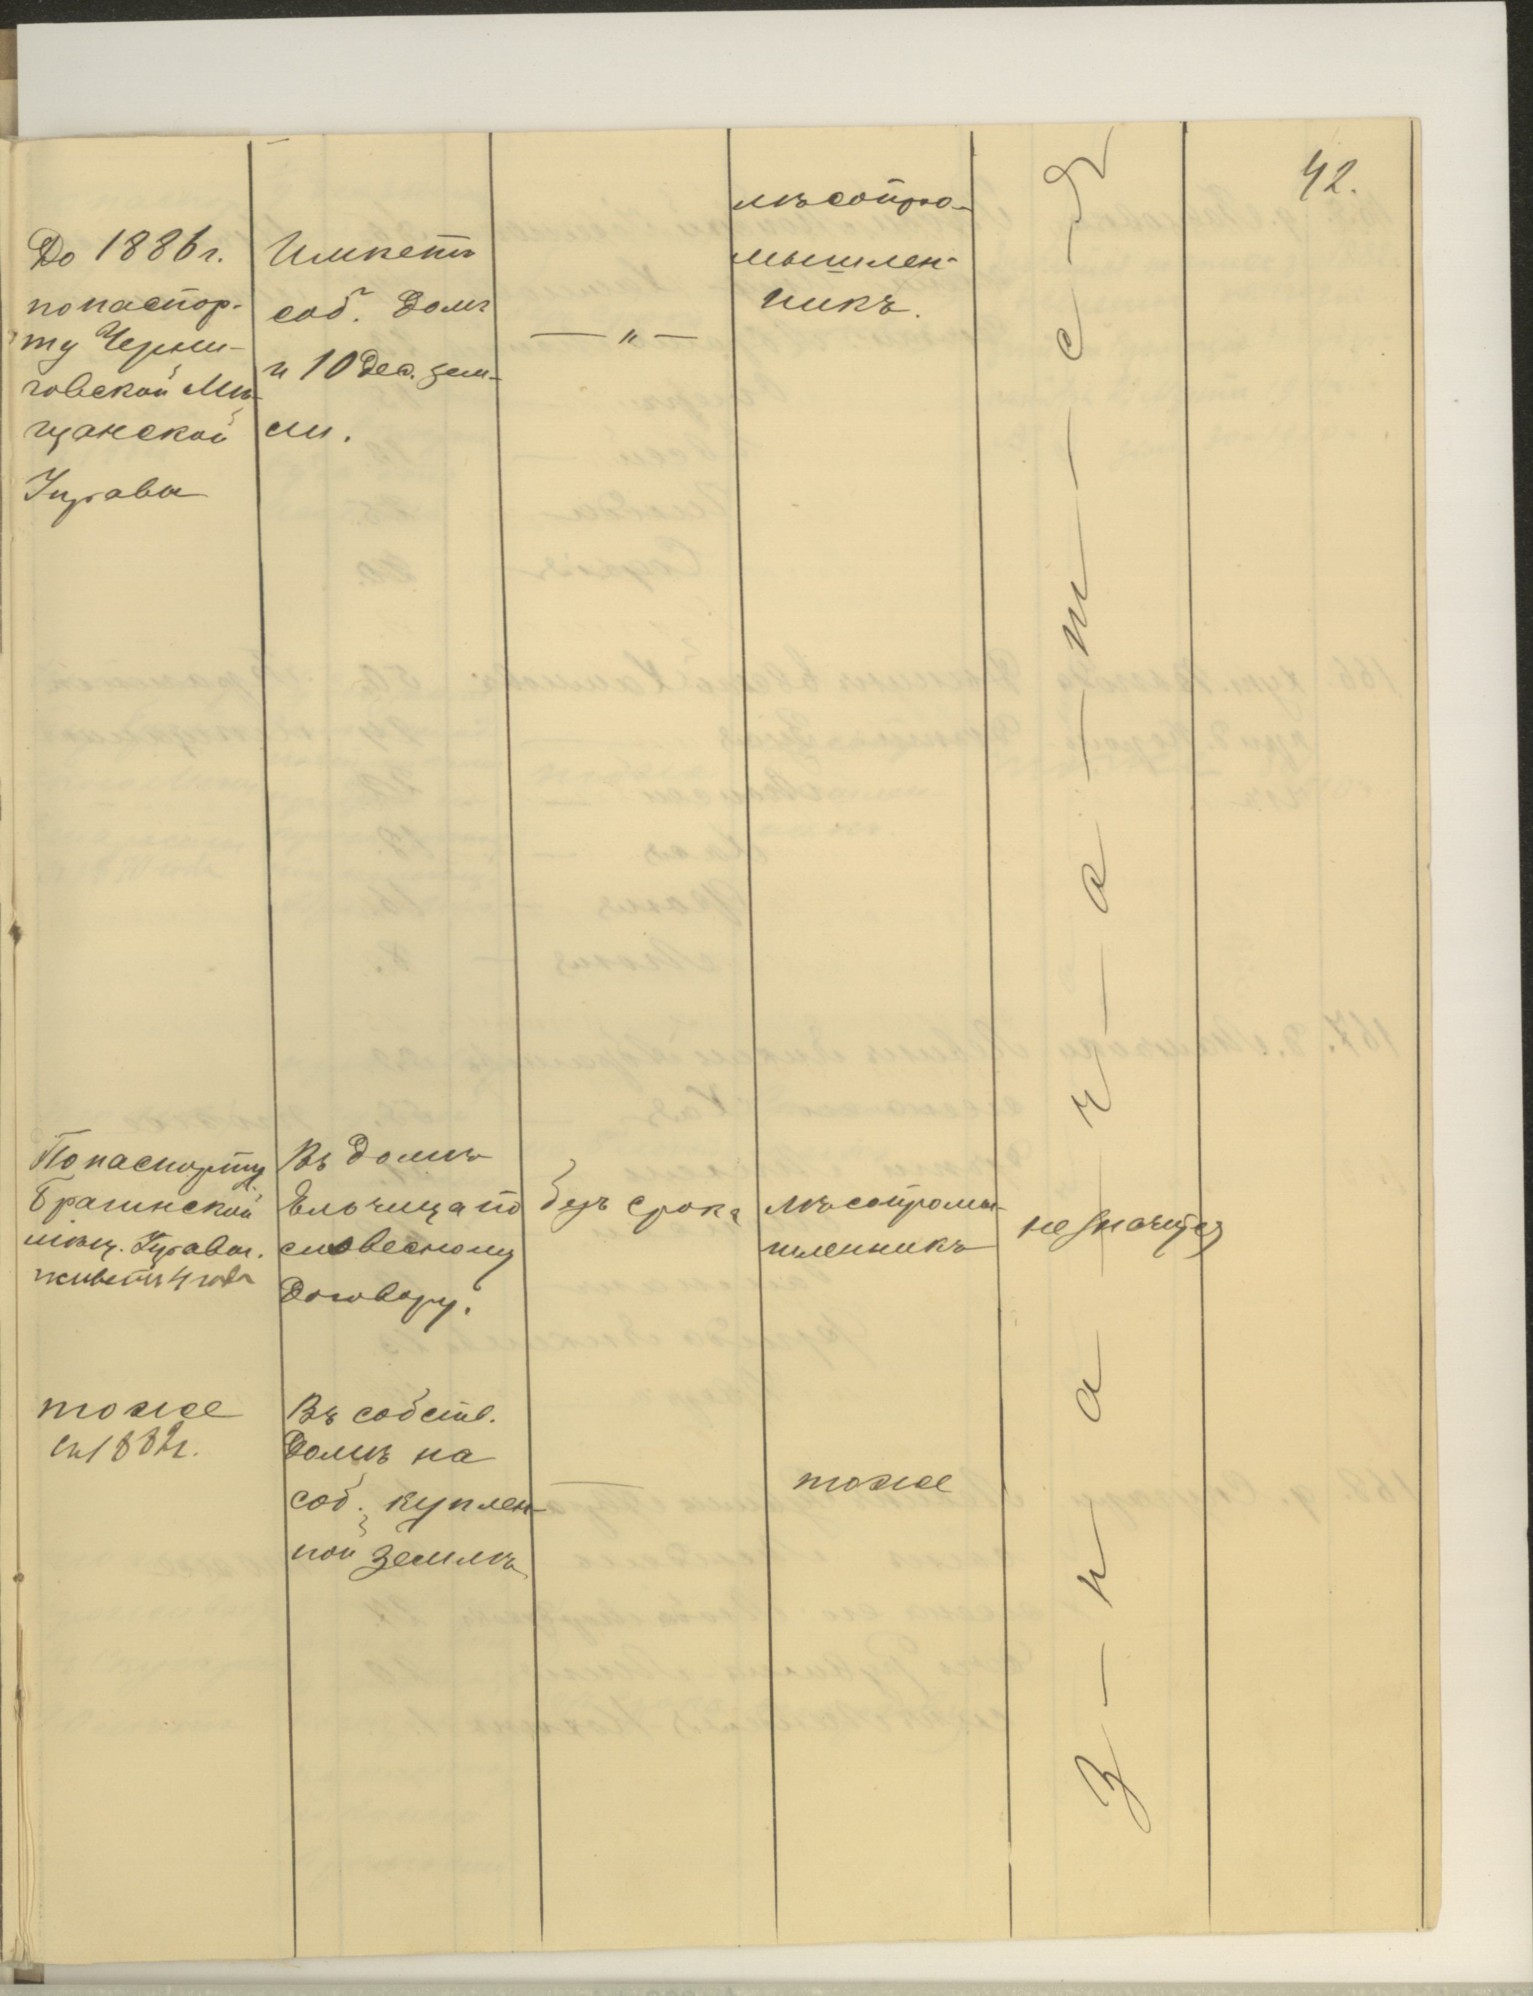 42.
До 1886 г.
по паспор-
ту Черни-
говской Мѣ-
щанской
Управы
Имѣетъ
соб. домъ
и 10 дес. зем-
ли.
— " —
лѣсопро-
мышлен-
никъ.
З-н-а-ч-а-т-с-я
По паспорту
Брагинской
мѣщ. Управы.
живетъ 4 года
Въ домѣ
по
словесному
договору.
безъ срока
лѣсопромы-
шленникъ
не значится
тоже
съ 1882 г.
Въ собств.
домѣ на
соб. куплен-
ной землѣ
—
тоже